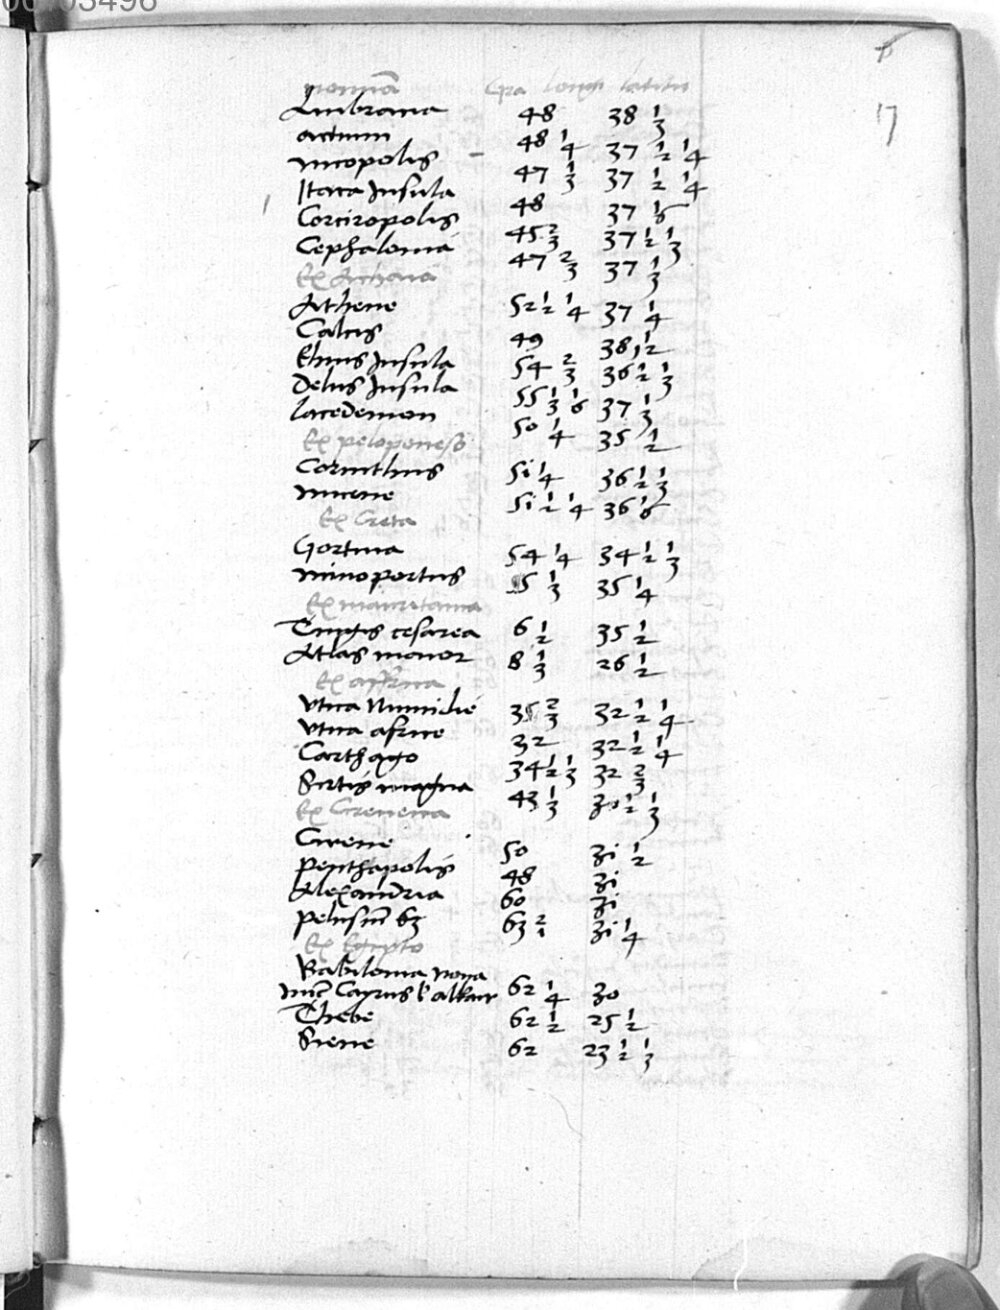 17
nomina gra longi latitu
Ambracia 48 38 1/3
actium 48 1/4 37 1/2 1/4
nicopolis 47 1/3 37 1/2 1/4
Itaca Insula 48 37 1/6
Corciropolis 45 2/3 37 1/2 1/3
Cephalonia 47 2/3 37 1/3
Ex Achaia
Athene 52 1/2 1/4 37 1/4
Calcis 49 38 1/2
Insula 54 2/3 36 1/2 1/3
Delus Insula 55 1/3 1/6 37 1/3
lacedemon 50 1/4 35 1/2
Ex peloponeso
Corinthus 51 1/4 36 1/2 1/3
micene 51 1/2 1/4 36 1/6
Ex Creta
Gortina 54 1/4 34 1/2 1/3
minoportus 55 1/3 35 1/4
Ex mauritania
Tingis cesarea 6 1/2 35 1/2
Atlas minor 8 1/3 26 1/2
Ex affrica
Utica Numidie 35 2/3 32 1/2 1/4
Utica africe 32 32 1/2 1/4
Carthago 34 1/2 1/3 32 2/3
Sirtis magna 43 1/3 30 1/2 1/3
Ex Cirenena
Cirene 50 31 1/2
penthapolis 48 31
Alexandria 60 31
pelusiu 63 63 2/1 31 1/4
Ex Egipto
Babilonia nova
nunc Cayrus l'alkair 62 1/4 30
Thebe 62 1/2 25 1/2
Siene 62 23 1/2 1/3